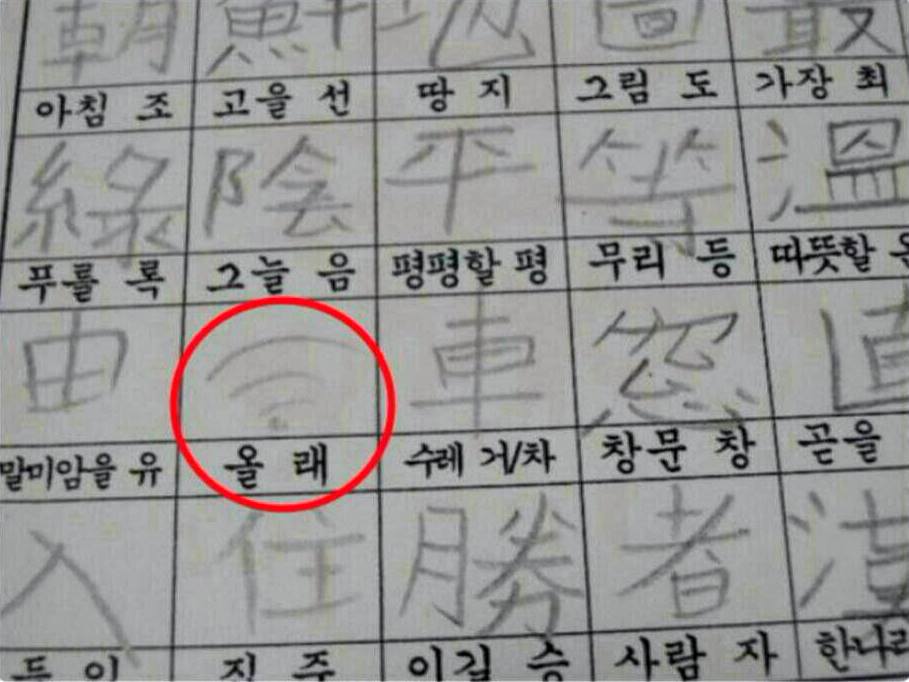 朝 鮮 地 圖 最
아침 조 고을 선 땅 지 그림 도 가장 최
綠 陰 平 等 溫
푸를 록 그늘 음 평평할 평 무리 등 따뜻할 온
由 車 窓 直
말미암을 유 올 래 수레 거/차 창문 창 곧을
入 住 勝 者
이길 승 사람 자